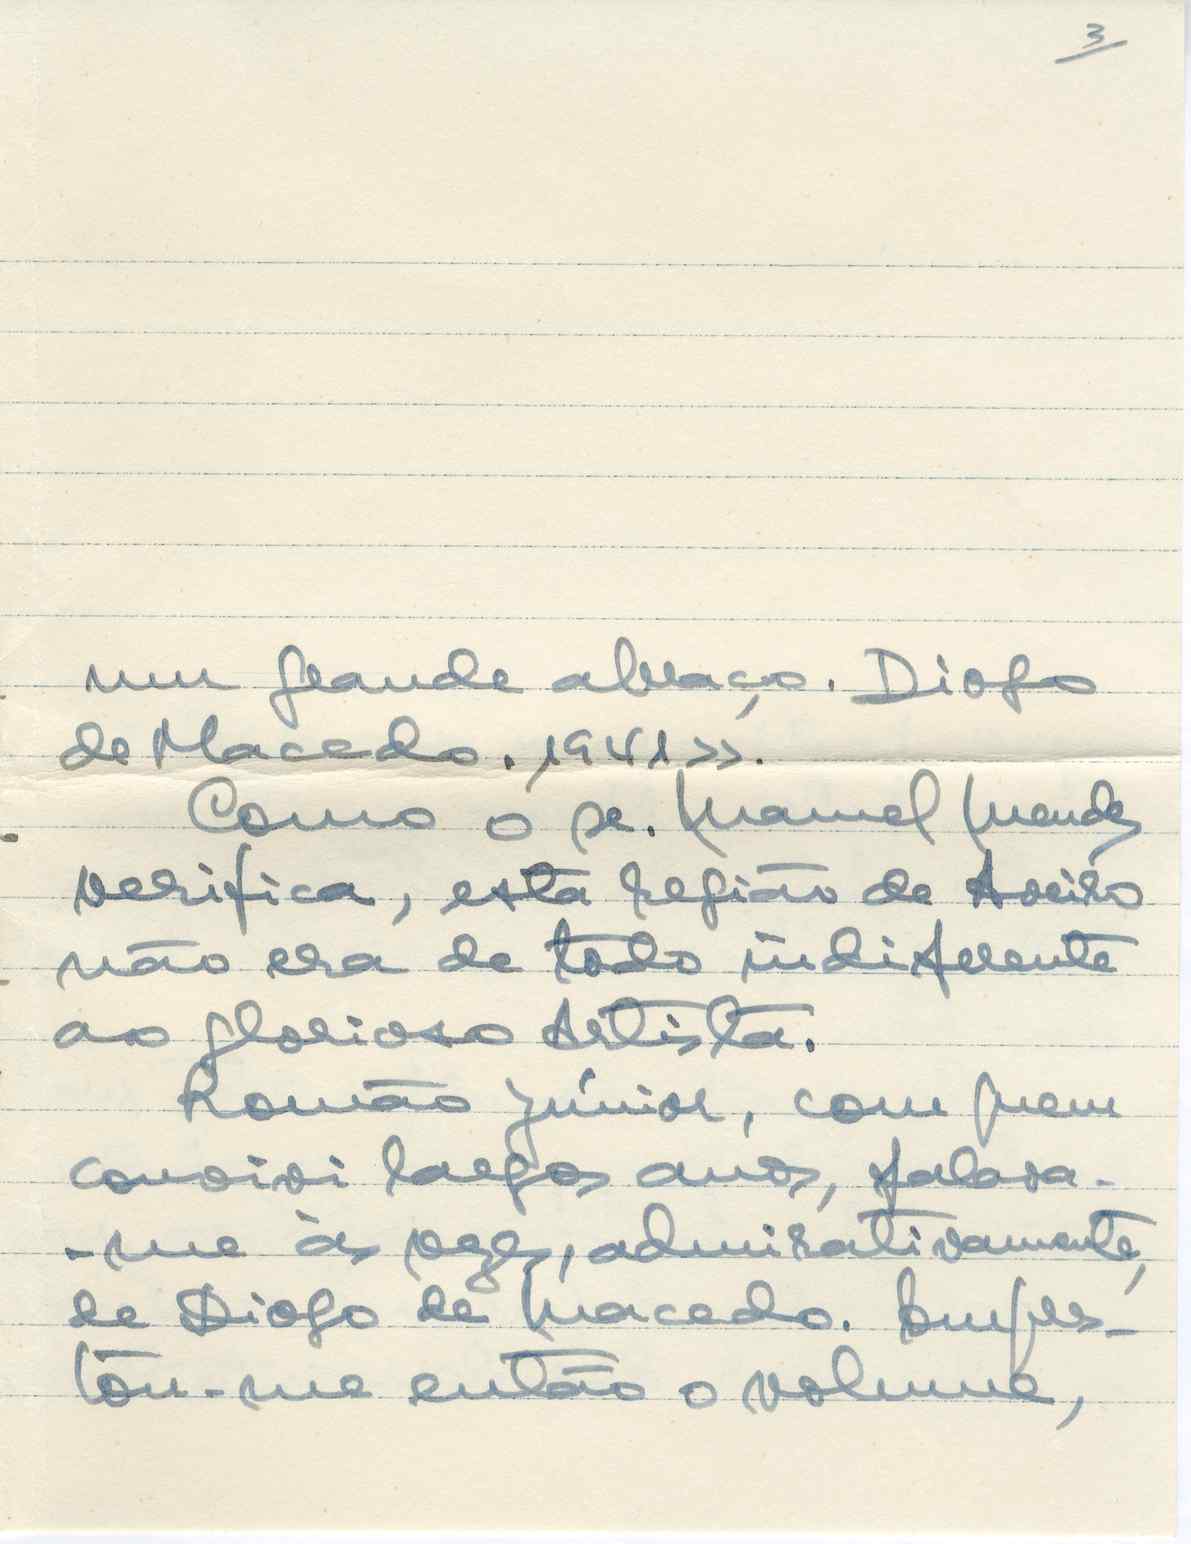 3
um grande abraço. Diogo
de Macedo. 1941».
Como o sr. Manuel Mendes
verifica, esta região de Aveiro
não era de todo indiferente
ao glorioso Artista.
Romão Júnior, com quem
convivi largos anos, falava-
-me às vezes, admirativamente,
de Diogo de Macedo. Empres-
tou-me então o volume,